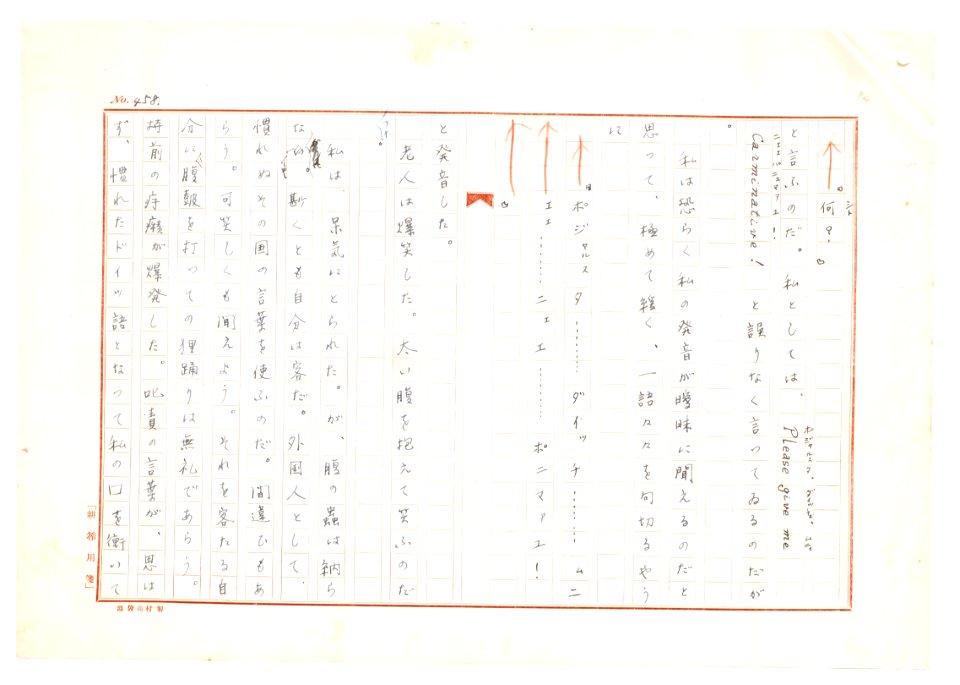 No. 458.
『何?』
シュ
と言ふのだ。私としては、Please give me
Carminative! と誤りなく言ってゐるのだが
。
私は恐らく私の発音が曖昧に聞えるのだと
思って、極めて緩く、一語々々を句切るやう
に
『ポジャルスタ………ダイッチ………ムニ
エエ………ニェエエ………ポニマァエ!』
と発音した。
老人は爆笑した。太い腹を抱えて笑ふのだ
っけ。
私は、呆気にとられた。が、腹の蟲は納ら
ない。斯くとも自分は客だ。外国人として、
慣れぬその国の言葉を使ふのだ。間違ひもあ
らう。可笑しくも聞えよう。それを客たる自
分に腹鼓を打っての狸踊りは無礼であらう。
持前の疳癪が爆発した。叱責の言葉が、思は
ず、慣れたドイツ語となって私の口を衝いて
「耕稼用箋」